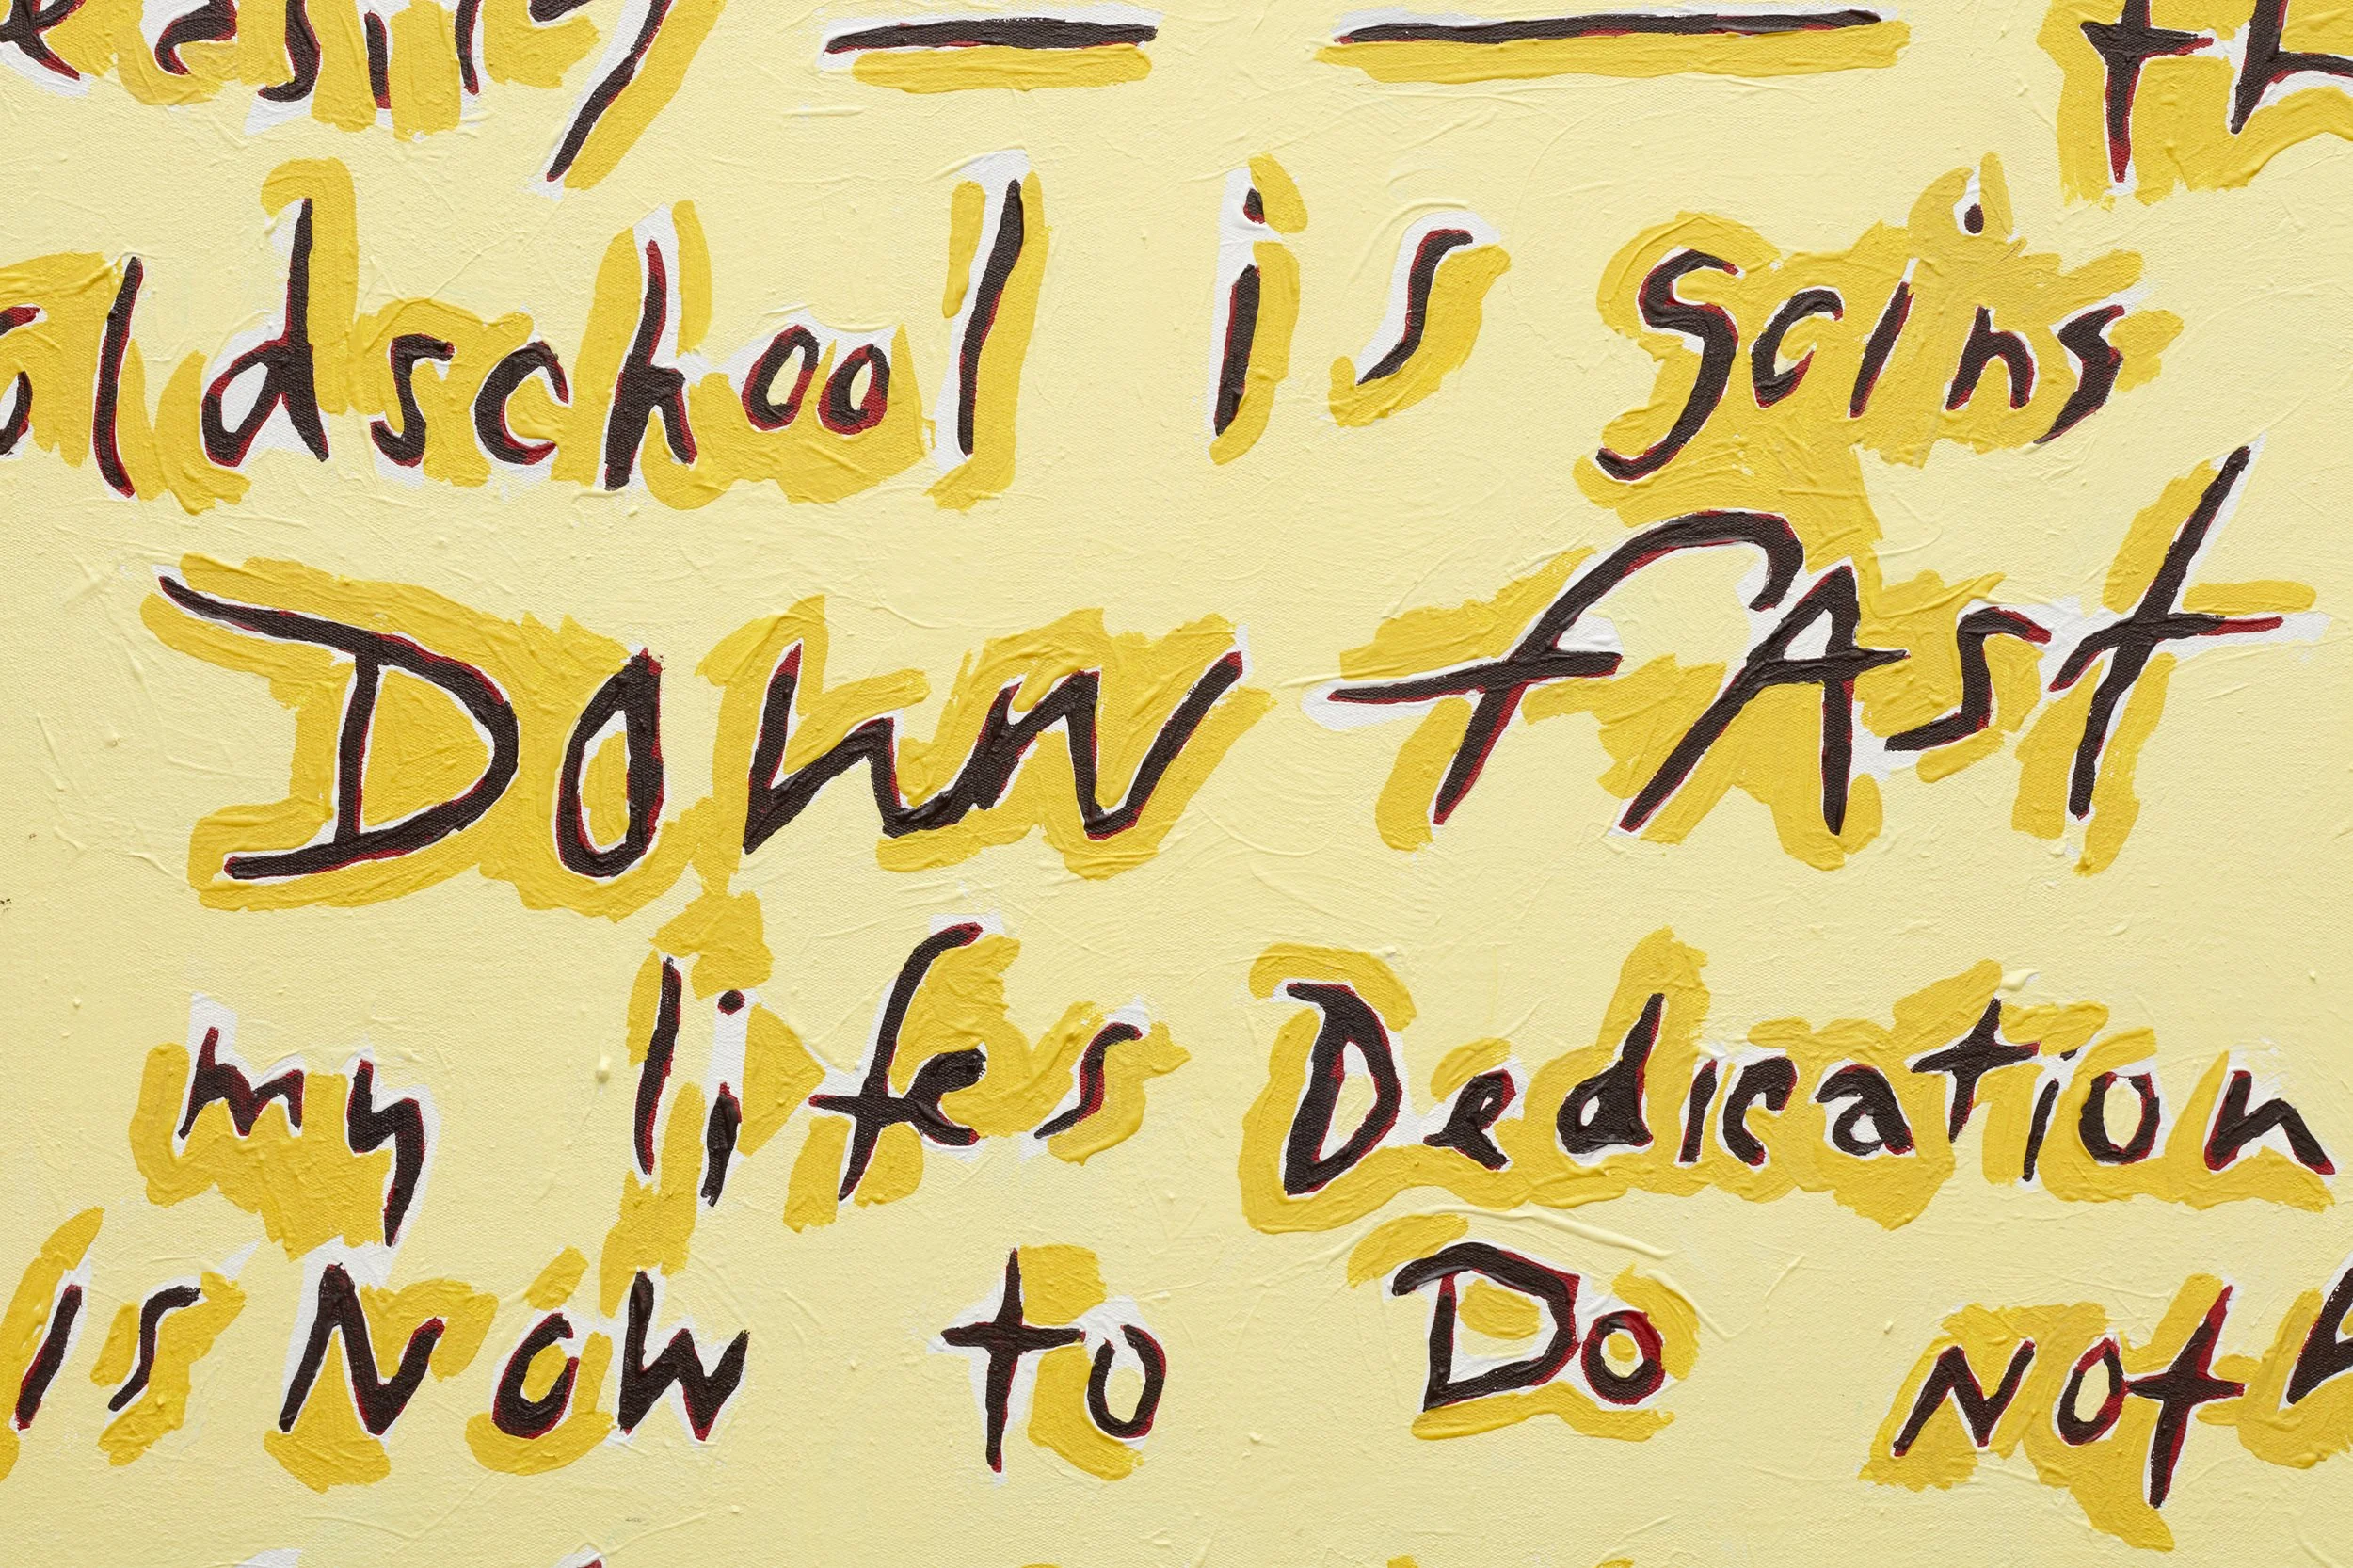 easily — — th
oldschool is going
Down fAst
my lifes Dedication
is Now to Do Not